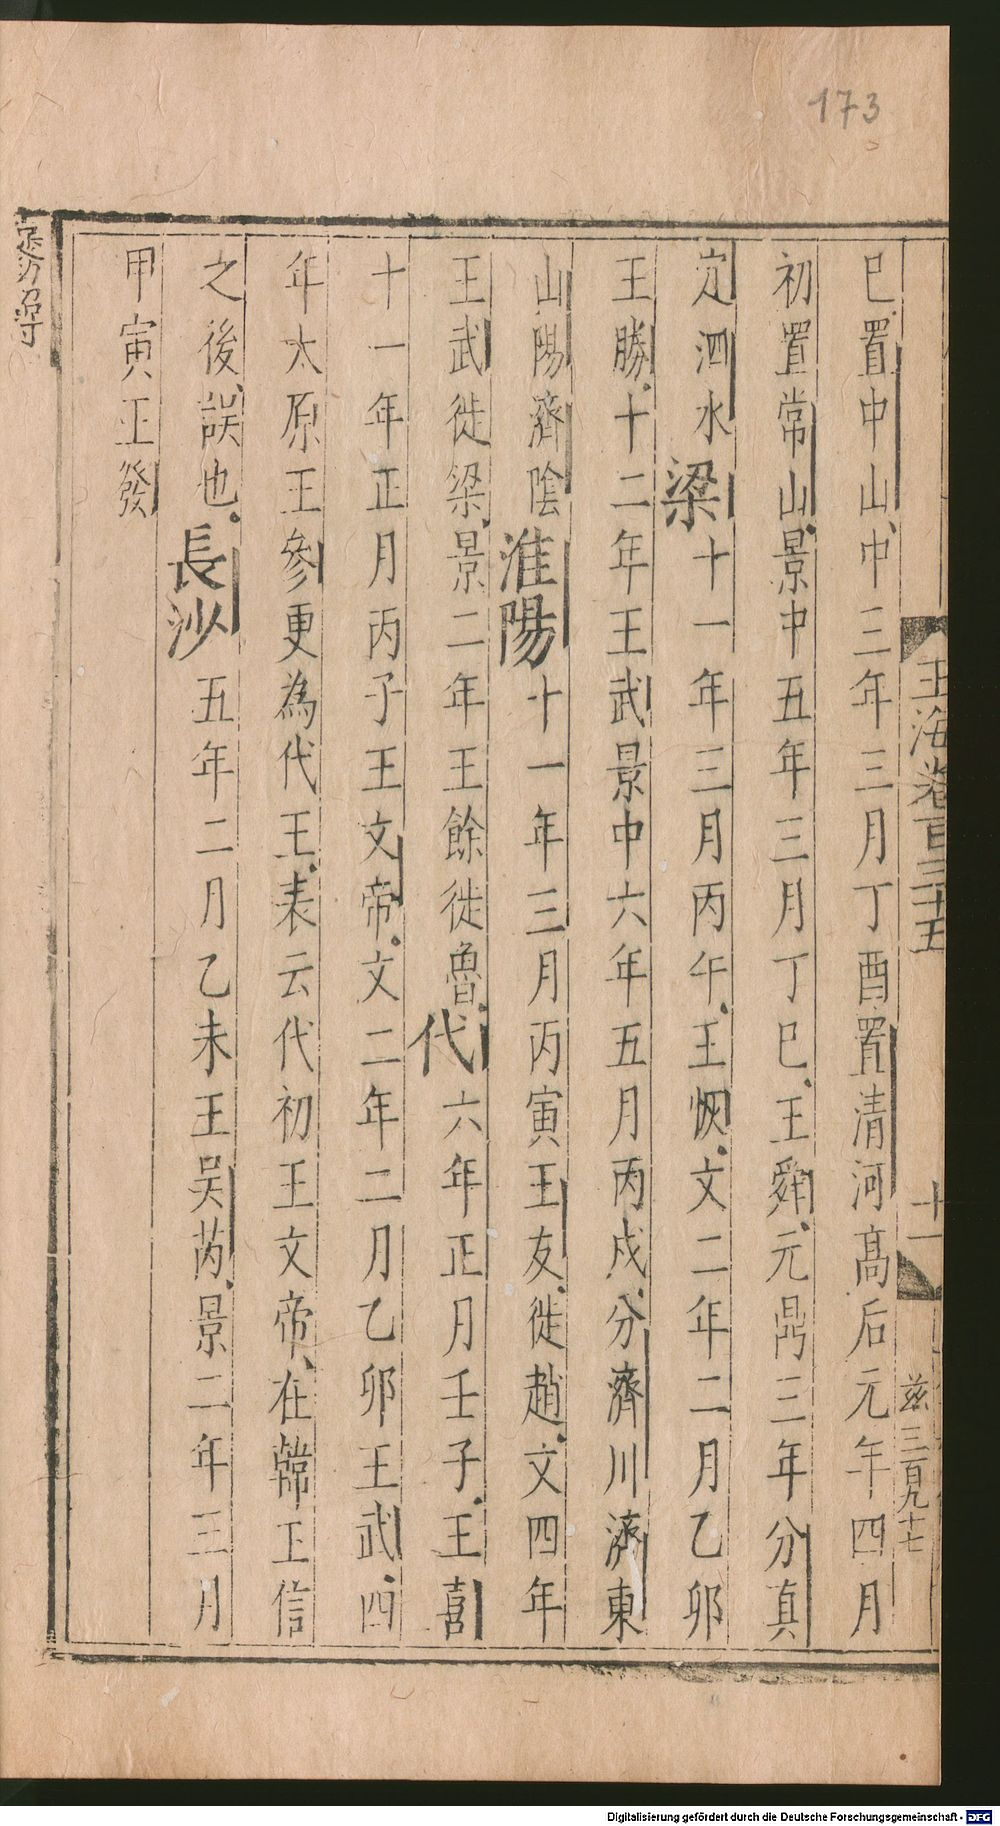 173
玉海卷百三十五
十一
兹三百九十七
巳置中山中三年三月丁酉置清河高后元年四月
初置常山景中五年三月丁巳王舜元鼎三年分真
定泗水梁十一年三月丙午王恢文二年二月乙卯
王勝十二年王武景中六年五月丙戌分濟川濟東
山陽濟陰淮陽十一年三月丙寅王友徙趙文四年
王武徙梁景二年王餘徙魯代六年正月壬子王喜
十一年正月丙子王文帝文二年二月乙卯王武四
年太原王參更為代王表云代初王文帝在韓王信
之後誤也長沙五年二月乙未王吳芮景二年三月
甲寅王發
Digitalisierung gefördert durch die Deutsche Forschungsgemeinschaft - DFG